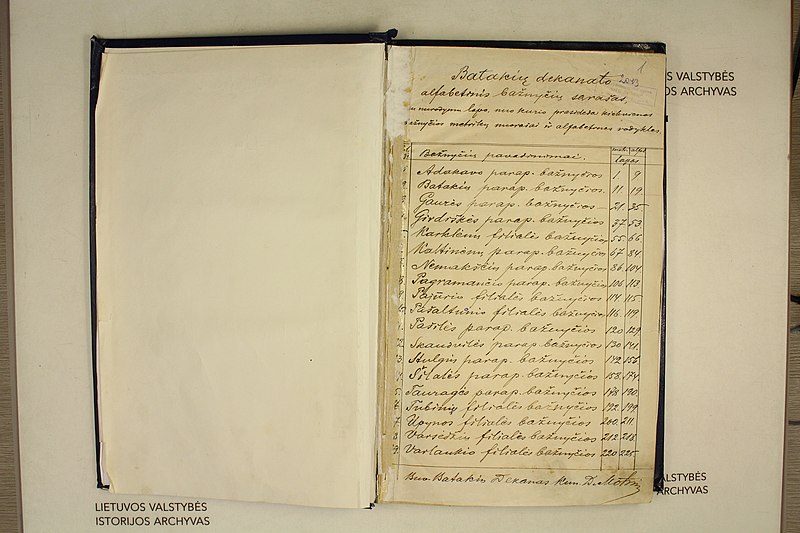 1
2013
Batakių dekanato
alfabetinis bažnyčių sąrašas,
su nurodymu lapo, nuo kurio prasideda kiekvienos
bažnyčios metrikų nuorašai ir alfabetinės rodyklės.
Bažnyčių pavadinimai. lapas
Adakavo parap. bažnyčios 1 9
Batakių parap. bažnyčios 11 19
Gaurės parap. bažnyčios 21 35
Girdiškės parap. bažnyčios 37 53
Karklėnų filialės bažnyčios 55 66
Kaltinėnų parap. bažnyčios 67 84
Nemakščių parap. bažnyčios 86 104
Pagramančio parap. bažnyčios 106 113
Pajūrio filialės bažnyčios 114 115
Pašaltunio filialės bažnyčios 116 119
Pašilės parap. bažnyčios 120 129
Skaudvilės parap. bažnyčios 130 141
Stulgių parap. bažnyčios 142 156
Šilalės parap. bažnyčios 158 174
Tauragės parap. bažnyčios 178 190
Tubinių filialės bažnyčios 192 199
Upynos filialės bažnyčios 200 211
Varsėdžių filialės bažnyčios 212 218
Varlaukio filialės bažnyčios 220 225
Buv. Batakių Dekanas kun. D.
S VALSTYBĖS
OS ARCHYVAS
ALSTYBĖS
ARCHYVAS
LIETUVOS VALSTYBĖS
ISTORIJOS ARCHYVAS